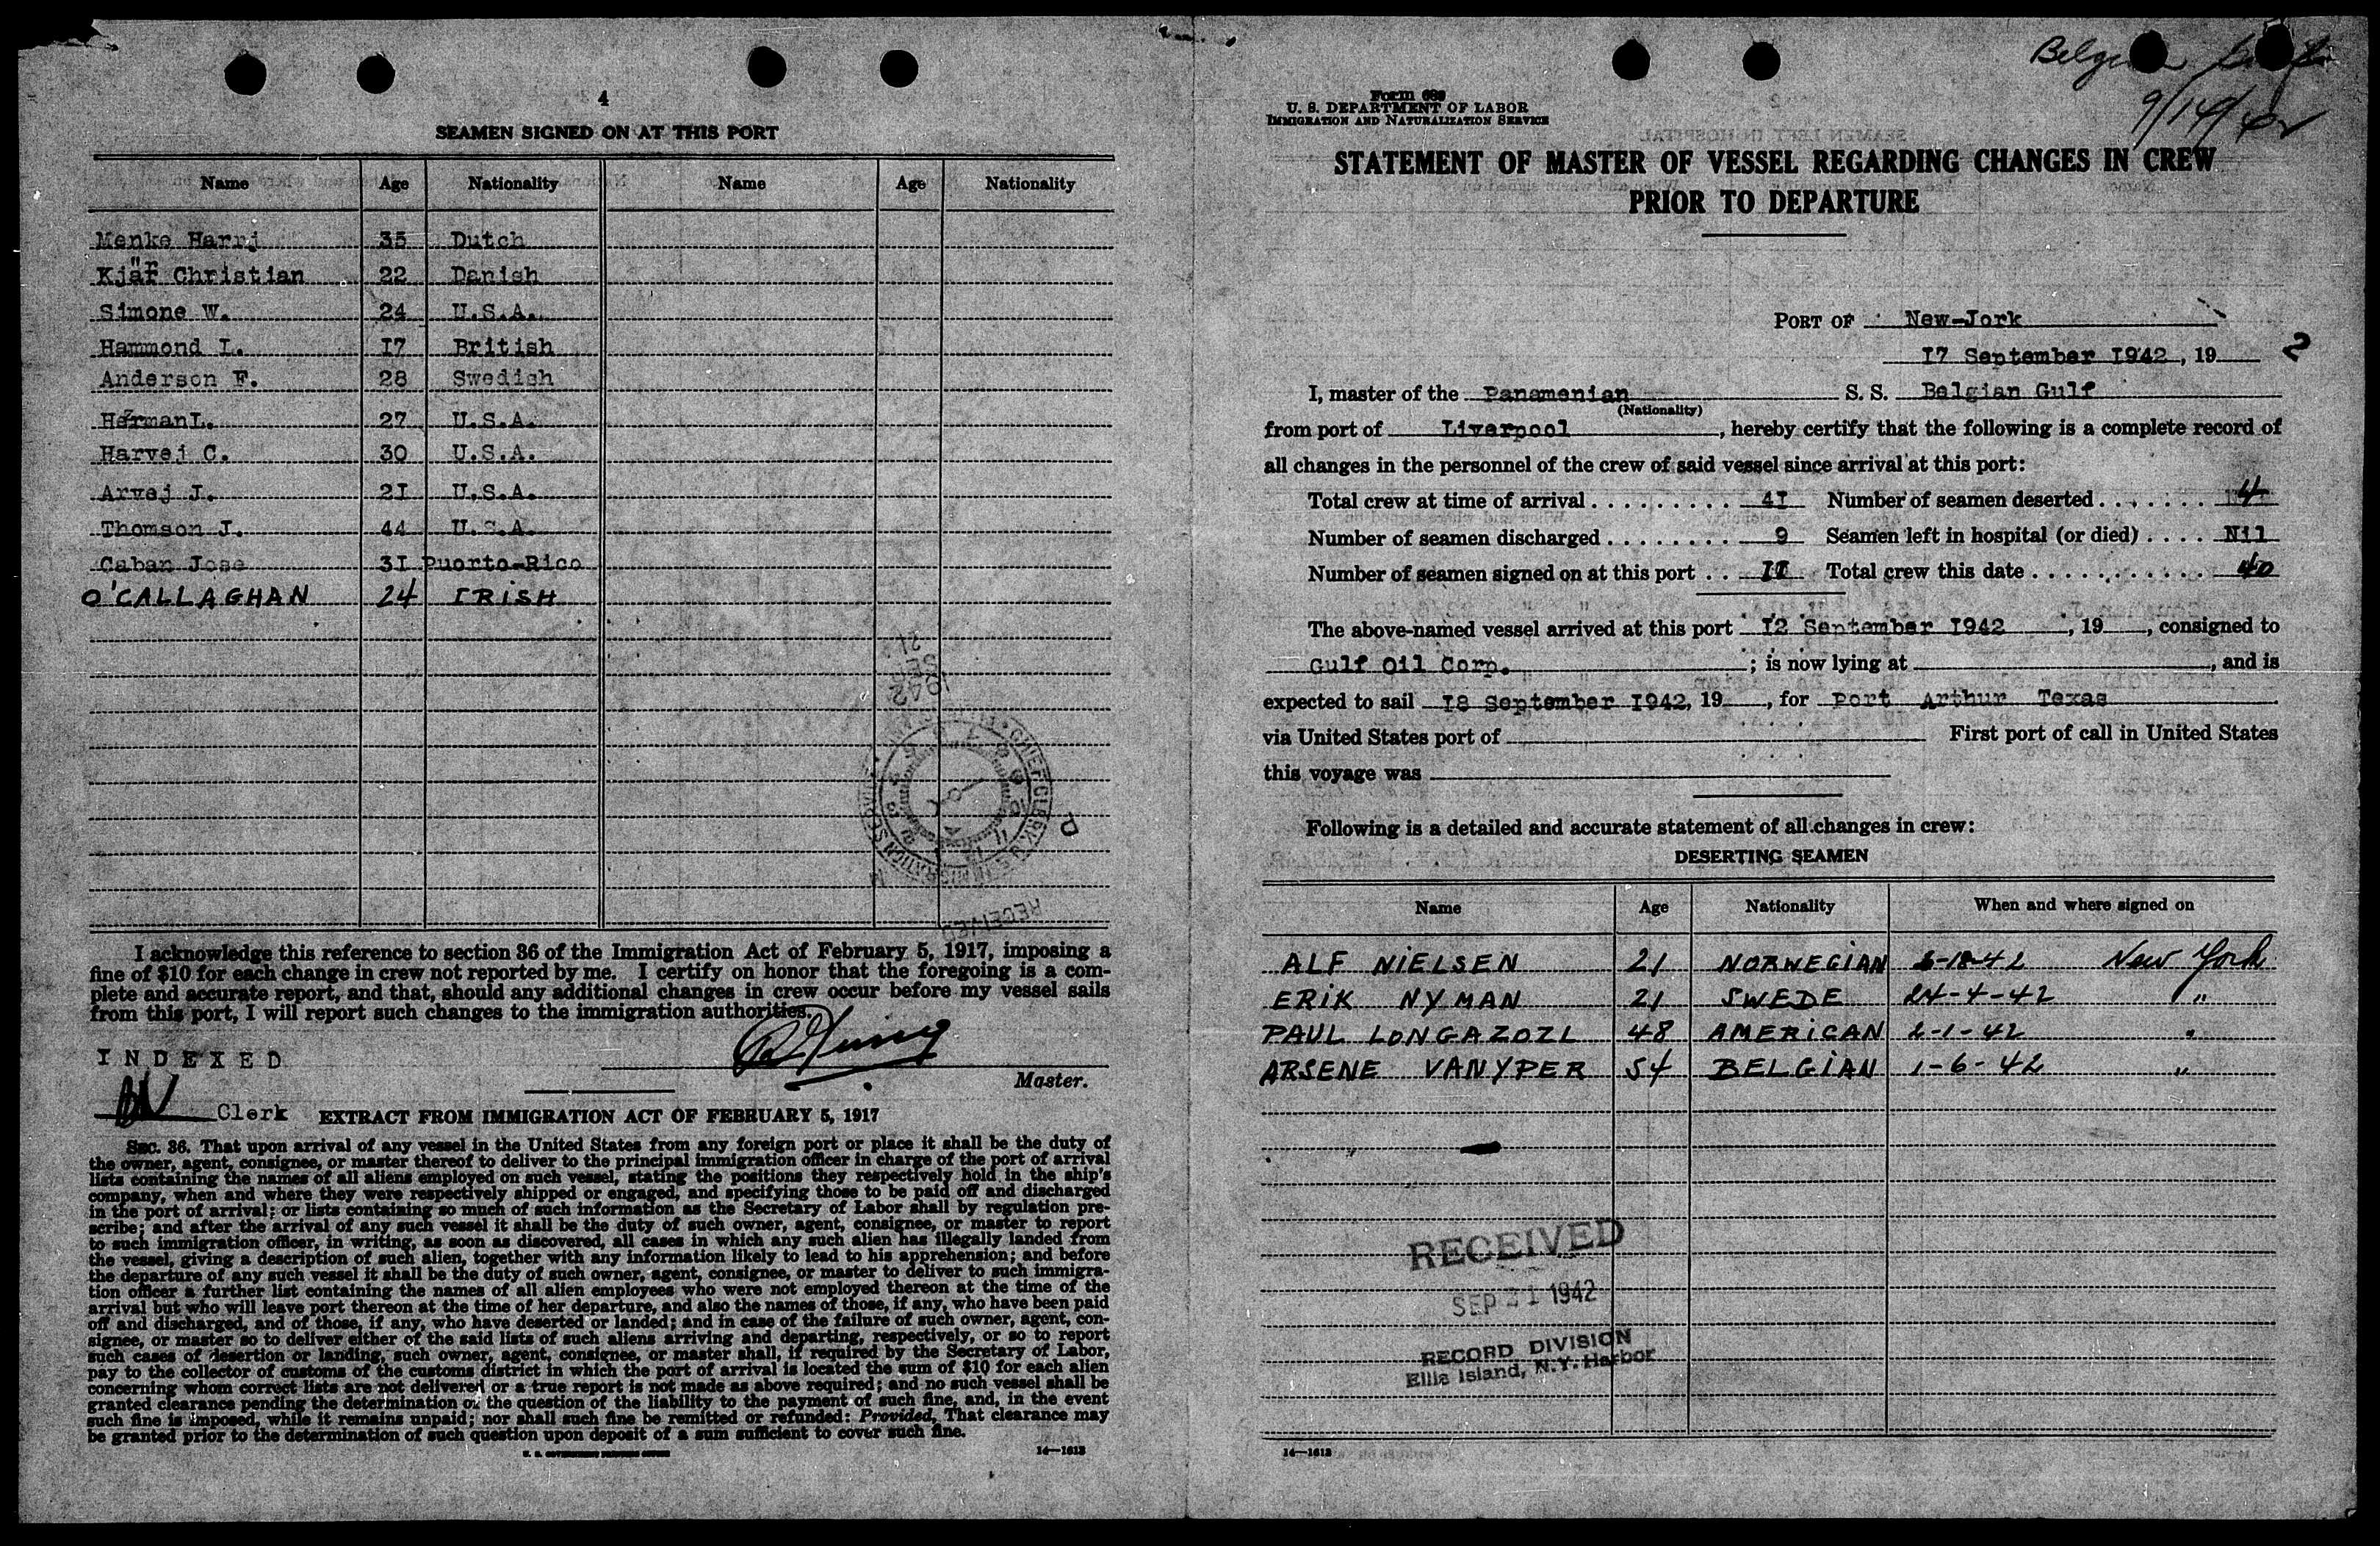 4
SEAMEN SIGNED ON AT THIS PORT
Name Age Nationality Name Age Nationality
Menke Harrj 35 Dutch
Kjär Christian 22 Danish
Simone W. 24 U.S.A.
Hammond L. I7 British
Anderson F. 28 Swedish
Herman L. 27 U.S.A.
Harvej C. 30 U.S.A.
Arvej J. 2I U.S.A.
Thomson J. 44 U.S.A.
Caban Jose 3I Puorto-Rico
O'CALLAGHAN 24 IRISH
I acknowledge this reference to section 36 of the Immigration Act of February 5, 1917, imposing a
fine of $10 for each change in crew not reported by me. I certify on honor that the foregoing is a com-
plete and accurate report, and that, should any additional changes in crew occur before my vessel sails
from this port, I will report such changes to the immigration authorities.
INDEXED
Master.
Clerk
EXTRACT FROM IMMIGRATION ACT OF FEBRUARY 5, 1917
SEC. 36. That upon arrival of any vessel in the United States from any foreign port or place it shall be the duty of
the owner, agent, consignee, or master thereof to deliver to the principal immigration officer in charge of the port of arrival
lists containing the names of all aliens employed on such vessel, stating the positions they respectively hold in the ship's
company, when and where they were respectively shipped or engaged, and specifying those to be paid off and discharged
in the port of arrival; or lists containing so much of such information as the Secretary of Labor shall by regulation pre-
scribe; and after the arrival of any such vessel it shall be the duty of such owner, agent, consignee, or master to report
to such immigration officer, in writing, as soon as discovered, all cases in which any such alien has illegally landed from
the vessel, giving a description of such alien, together with any information likely to lead to his apprehension; and before
the departure of any such vessel it shall be the duty of such owner, agent, consignee, or master to deliver to such immigra-
tion officer a further list containing the names of all alien employees who were not employed thereon at the time of the
arrival but who will leave port thereon at the time of her departure, and also the names of those, if any, who have been paid
off and discharged, and of those, if any, who have deserted or landed; and in case of the failure of such owner, agent, con-
signee, or master so to deliver either of the said lists of such aliens arriving and departing, respectively, or so to report
such cases of desertion or landing, such owner, agent, consignee, or master shall, if required by the Secretary of Labor,
pay to the collector of customs of the customs district in which the port of arrival is located the sum of $10 for each alien
concerning whom correct lists are not delivered or a true report is not made as above required; and no such vessel shall be
granted clearance pending the determination of the question of the liability to the payment of such fine, and, in the event
such fine is imposed, while it remains unpaid; nor shall such fine be remitted or refunded: Provided, That clearance may
be granted prior to the determination of such question upon deposit of a sum sufficient to cover such fine.
U. S. GOVERNMENT PRINTING OFFICE 14—1613
9/14/42
Form 689
U. S. DEPARTMENT OF LABOR
IMMIGRATION AND NATURALIZATION SERVICE
STATEMENT OF MASTER OF VESSEL REGARDING CHANGES IN CREW
PRIOR TO DEPARTURE
PORT OF New-Jork
I7 September I942, 19 2
I, master of the Panamenian S. S. Belgian Gulf
(Nationality)
from port of Liverpool, hereby certify that the following is a complete record of
all changes in the personnel of the crew of said vessel since arrival at this port:
Total crew at time of arrival 4I Number of seamen deserted 4
Number of seamen discharged 9 Seamen left in hospital (or died) Nil
Number of seamen signed on at this port Total crew this date 40
The above-named vessel arrived at this port I2 September I942, 19, consigned to
Gulf Oil Corp.; is now lying at , and is
expected to sail I8 September I942, 19, for Port Arthur Texas
via United States port of First port of call in United States
this voyage was
Following is a detailed and accurate statement of all changes in crew:
DESERTING SEAMEN
Name Age Nationality When and where signed on
ALF NIELSEN 21 NORWEGIAN 18-42 New York
ERIK NYMAN 21 SWEDE 24-4-42 "
PAUL LONGAZOZL 48 AMERICAN 2-1-42 "
ARSENE VANYPER 54 BELGIAN 1-6-42 "
RECEIVED
SEP 21 1942
RECORD DIVISION
Ellis Island, N.Y. Harbor
14—1613